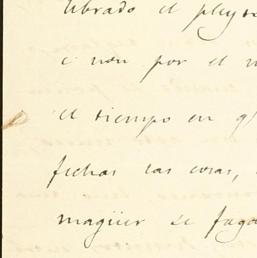 librado el pleyto
e non por el n
el tiempo en q
fechas las cosas,
magüer se faga